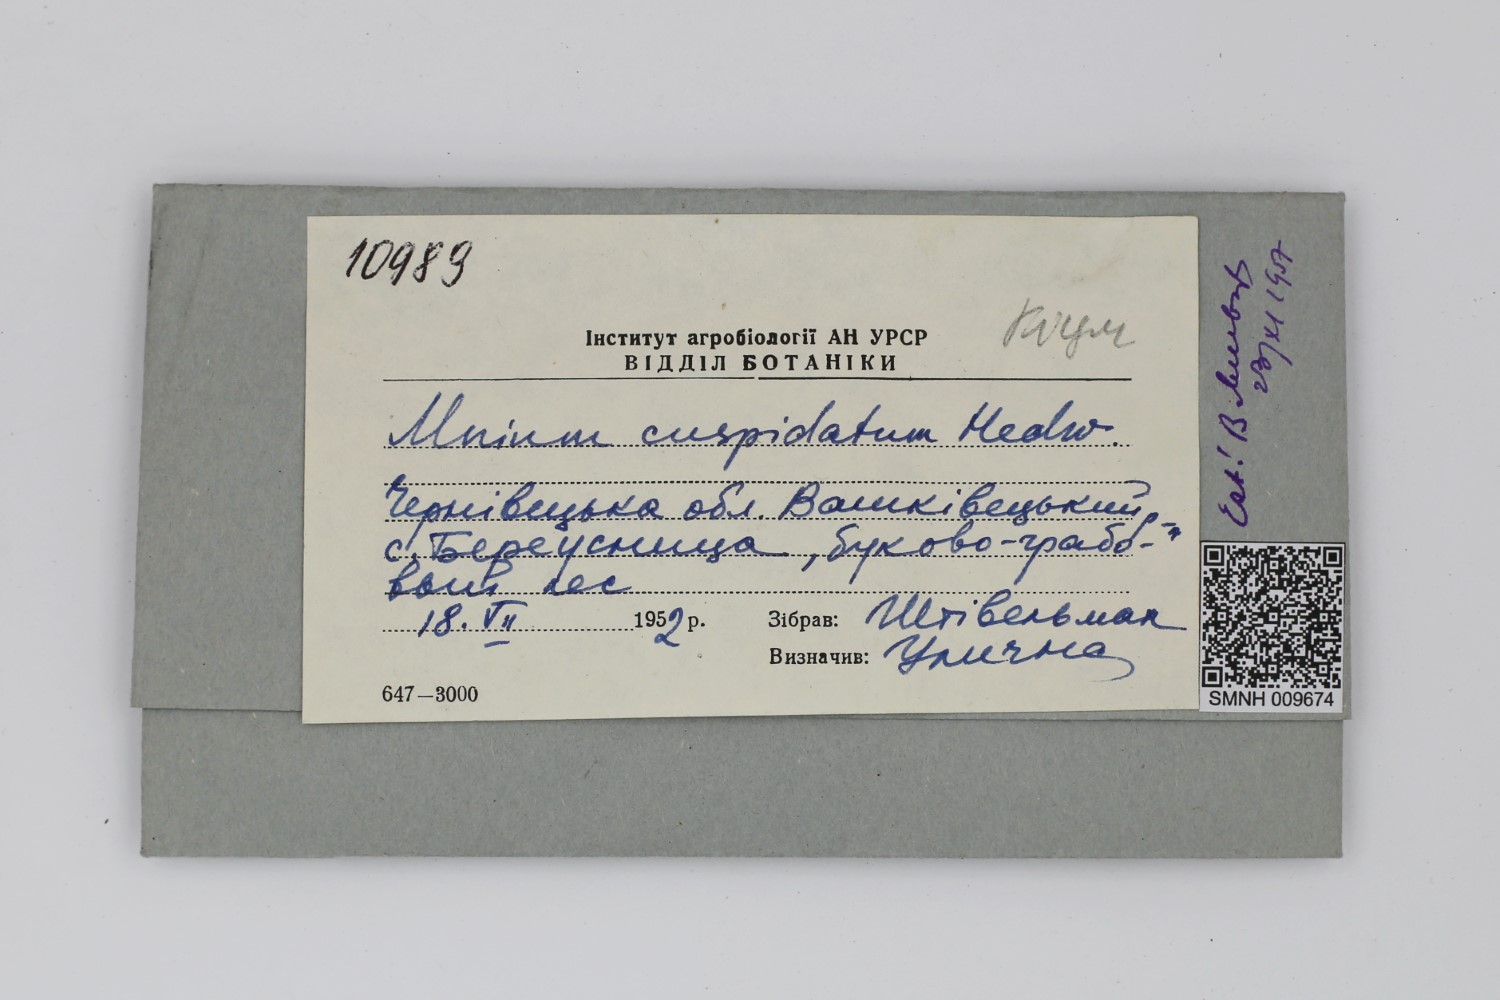 10989
Інститут агробіології АН УРСР
ВІДДІЛ БОТАНІКИ
Mnium cuspidatum Hedw.
Чернівецька обл. Вашківецький р-н
с. Береусница, буково-грабо-
вый лес
18. VII 1952 р.
Зібрав: Штівельман
Визначив: Улична
647—3000
Est! В
23/XI 1957
SMNH 009674